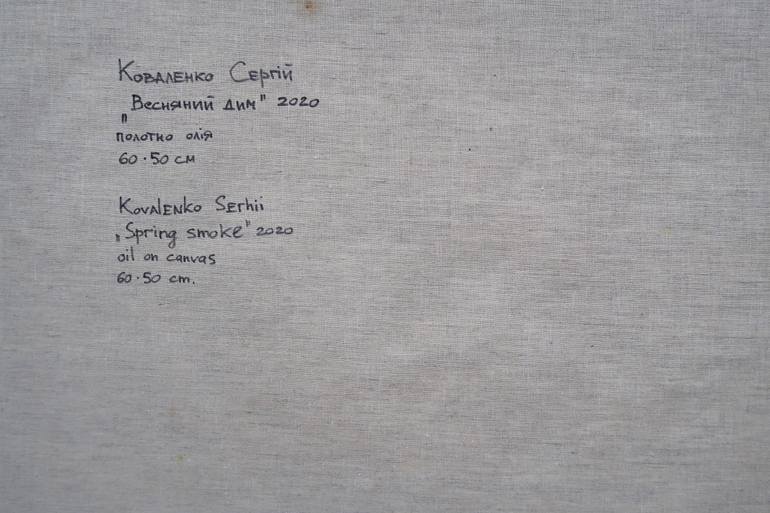 Коваленко Сергій
"Весняний дим" 2020
полотно олія
60·50 см
Kovalenko Serhii
„Spring smoke" 2020
oil on canvas
60·50 cm.